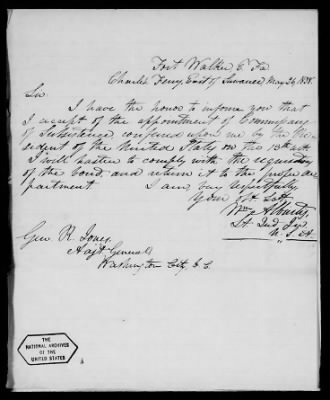 Fort Walker E. Fa
Charles Ferry, East of Suwanee May 26, 1838.
Sir
I have the honor to inform you that
I accept of the appointment of Commissary
of Subsistence conferred upon me by the Pre-
sident of the United States on the 13th
I will hasten to comply with the
of the bond and return it to the proper De-
partment I am, very respectfully
Your Obt Svt
Wm
Lt. 2nd
U. S. A.
Gen. R. Jones,
Adjt General
Washington City, D. C.
THE
NATIONAL ARCHIVES
OF THE
UNITED STATES